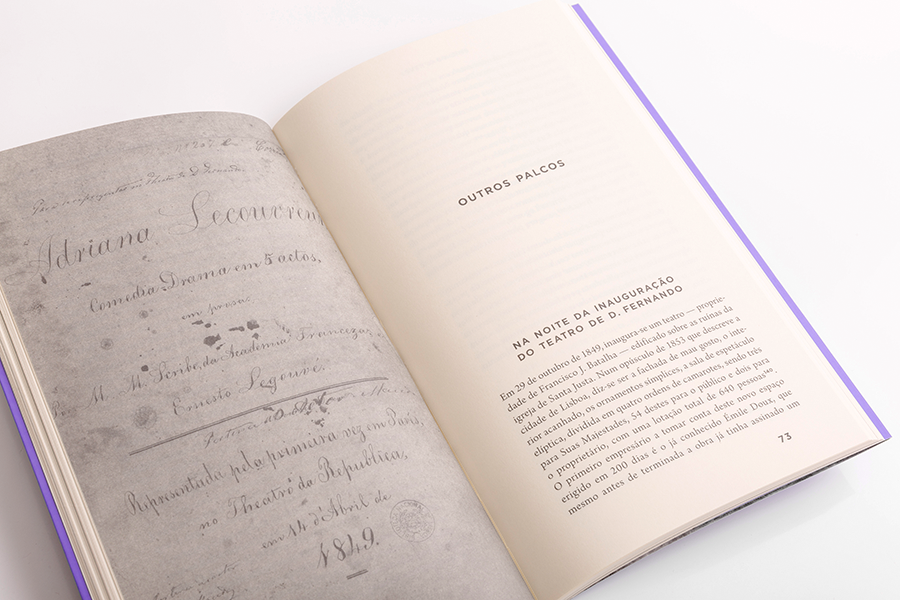 Adriana Lecouvreur
Comedia Drama em 5 actos,
em prosa.
Por M. M. Scribe, da Academia Franceza
Ernesto Legouvé.
Representada pela primeira vez em Paris,
no Theatro da Republica,
em 14 d'Abril de
1849.
OUTROS PALCOS
NA NOITE DA INAUGURAÇÃO
DO TEATRO DE D. FERNANDO
Em 29 de outubro de 1849, inaugura-se um teatro — proprie-
dade de Francisco J. Batalha — edificado sobre as ruínas da
igreja de Santa Justa. Num opúsculo de 1853 que descreve a
cidade de Lisboa, diz-se ser a fachada de mau gosto, o inte-
rior acanhado, os ornamentos símplices, a sala de espetáculo
elíptica, dividida em quatro ordens de camarotes, sendo três
para Suas Majestades, 54 destes para o público e dois para
o proprietário, com uma lotação total de 640 pessoas
O primeiro empresário a tomar conta deste novo espaço
erigido em 200 dias é o já conhecido Émile Doux, que
mesmo antes de terminada a obra já tinha assinado um
73